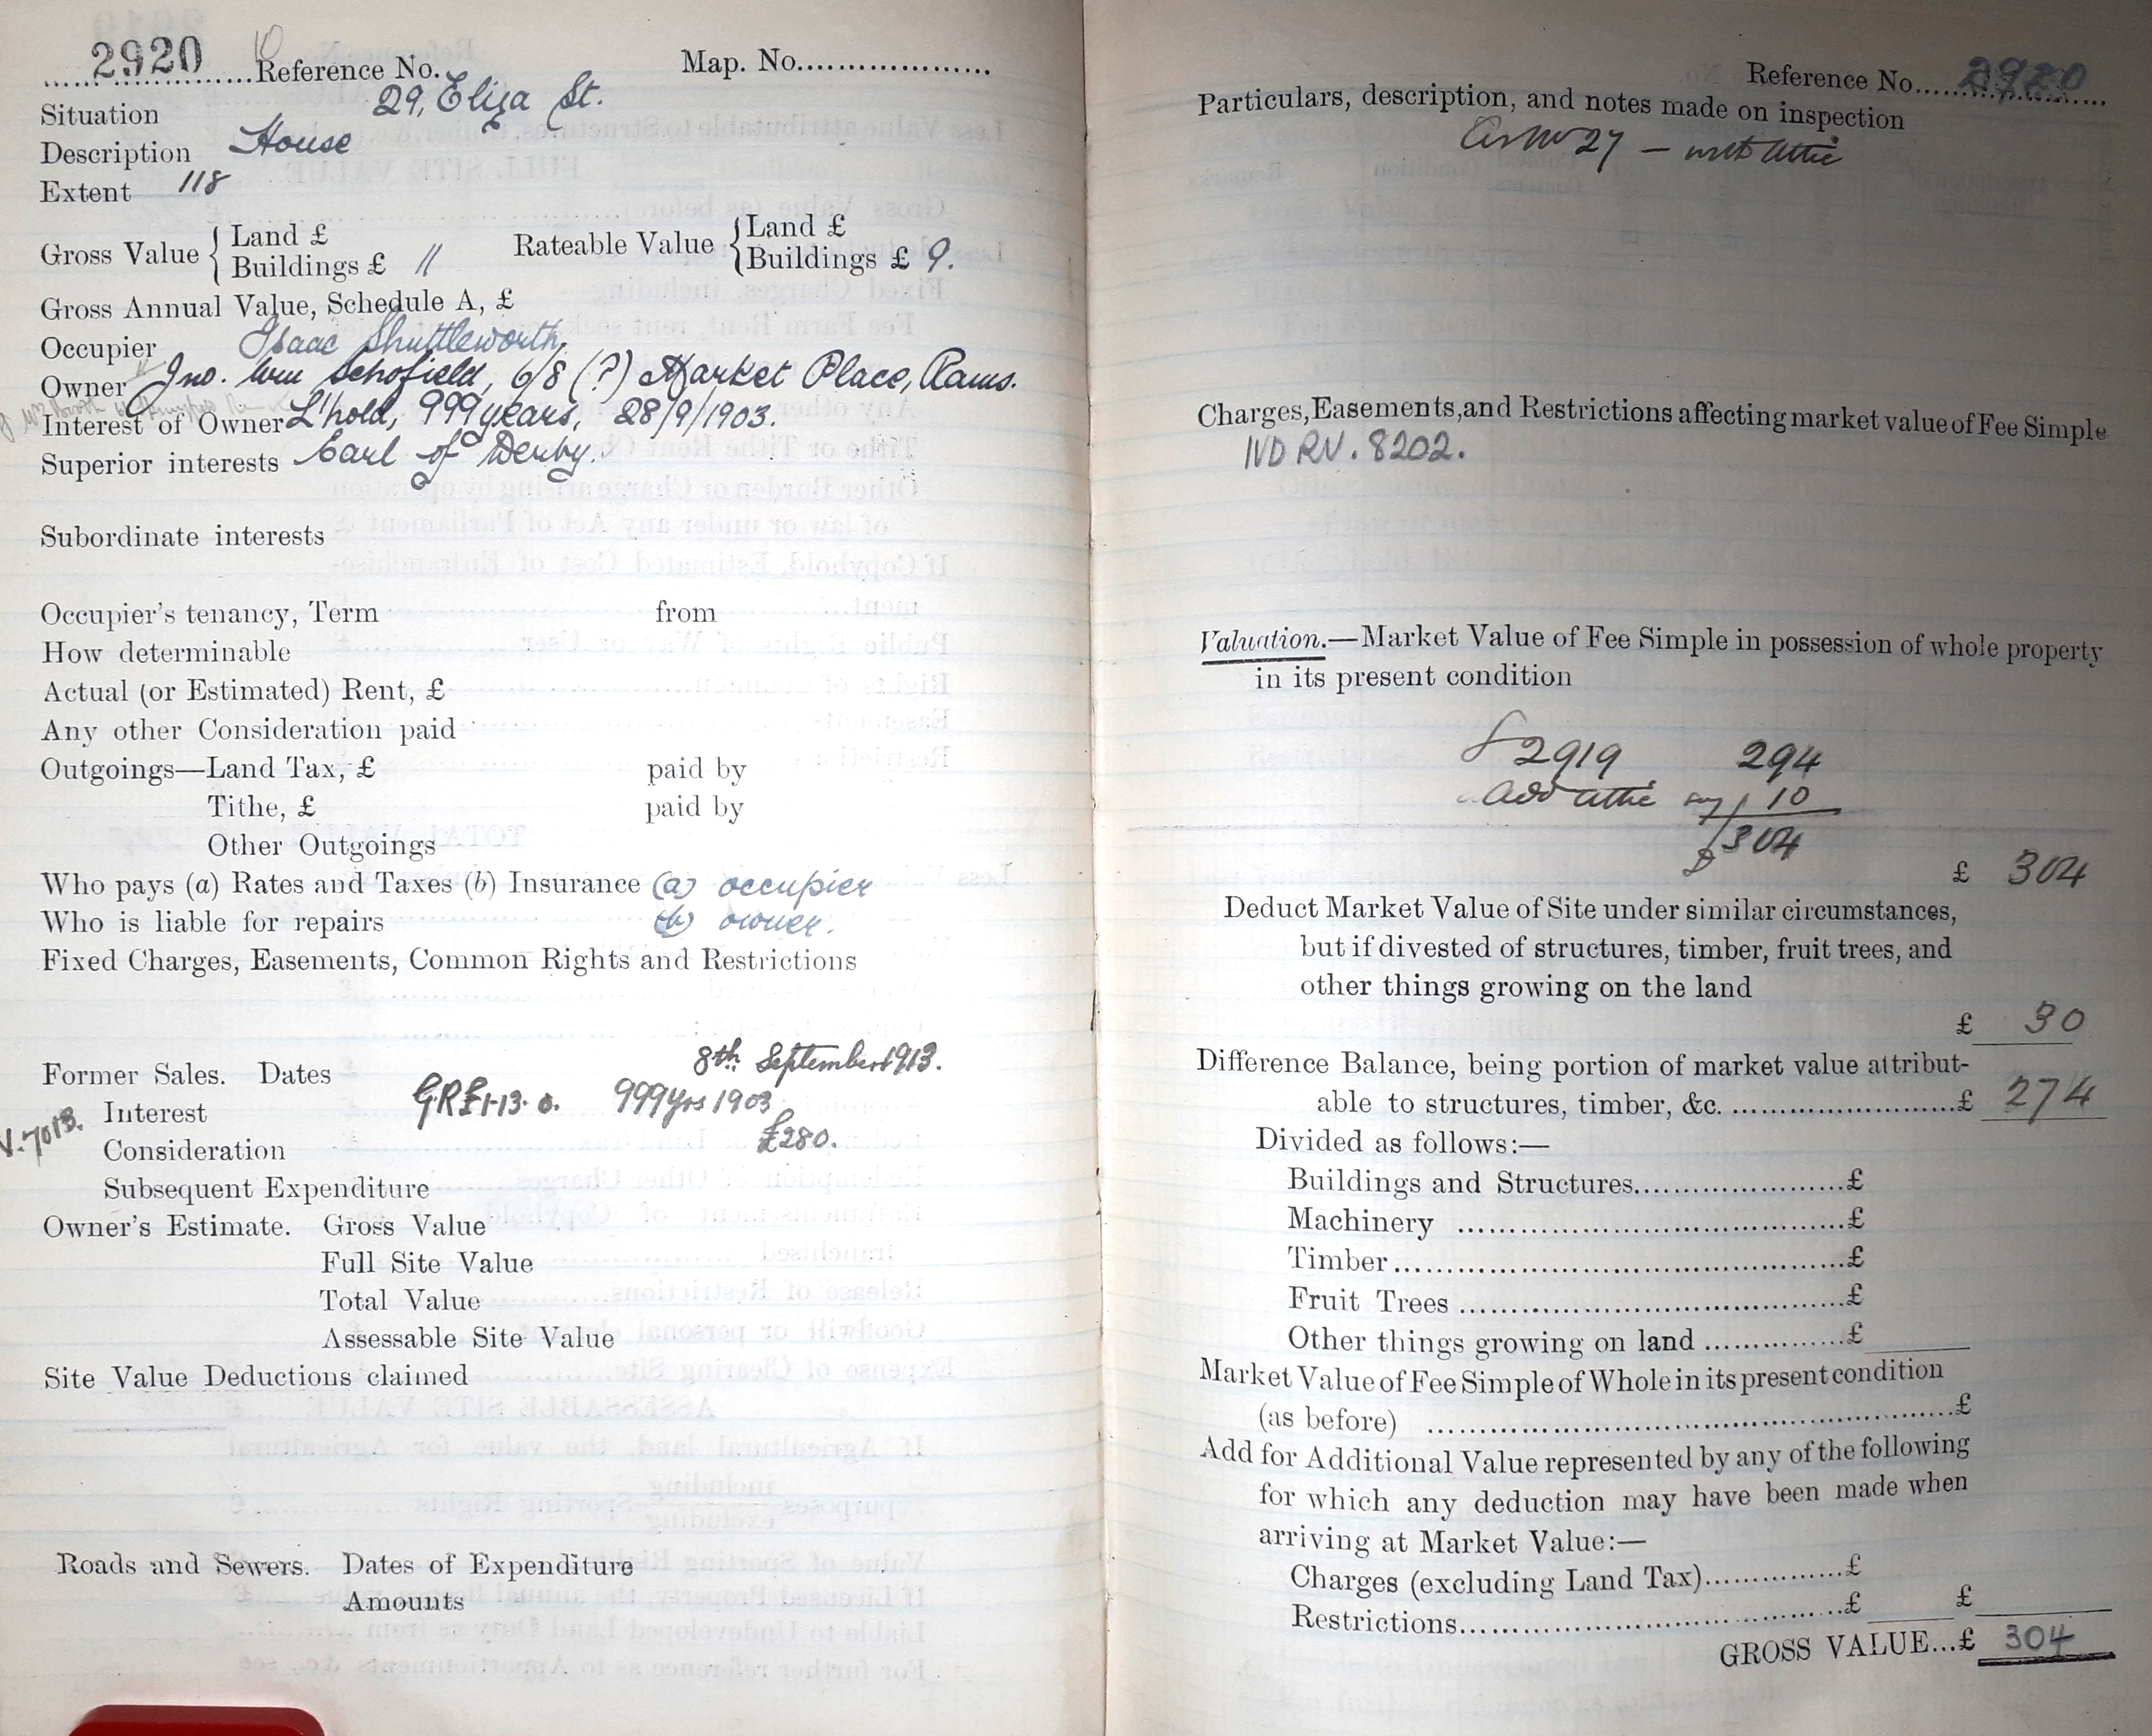 2920 Reference No. Map. No.
10
Situation 29, Eliza St.
Description House
Extent 118
Gross Value { Land £ Rateable Value { Land £
Buildings £ 11 Buildings £ 9.
Gross Annual Value, Schedule A, £
Occupier Isaac Shuttleworth
Owner Jno. Wm Schofield, 6/8 (?) Market Place, Rams.
Interest of Owner L'hold, 999 years, 28/9/1903.
Superior interests Earl of Derby.
Subordinate interests
Occupier's tenancy, Term from
How determinable
Actual (or Estimated) Rent, £
Any other Consideration paid
Outgoings—Land Tax, £ paid by
Tithe, £ paid by
Other Outgoings
Who pays (a) Rates and Taxes (b) Insurance (a) occupier
Who is liable for repairs (b) owner.
Fixed Charges, Easements, Common Rights and Restrictions
Former Sales. Dates 8th September 1913.
Interest GR £1-13-0. 999 yrs 1903
V.7013.
Consideration £280.
Subsequent Expenditure
Owner's Estimate. Gross Value
Full Site Value
Total Value
Assessable Site Value
Site Value Deductions claimed
Roads and Sewers. Dates of Expenditure
Amounts
Reference No. 2920
Particulars, description, and notes made on inspection
As No 27 — with attic
Charges, Easements, and Restrictions affecting market value of Fee Simple
IVD RV. 8202.
Valuation.—Market Value of Fee Simple in possession of whole property
in its present condition
2919 294
add attic say 10
£304
£ 304
Deduct Market Value of Site under similar circumstances,
but if divested of structures, timber, fruit trees, and
other things growing on the land
£ 30
Difference Balance, being portion of market value attribut-
able to structures, timber, &c. £ 274
Divided as follows:—
Buildings and Structures £
Machinery £
Timber £
Fruit Trees £
Other things growing on land £
Market Value of Fee Simple of Whole in its present condition
(as before) £
Add for Additional Value represented by any of the following
for which any deduction may have been made when
arriving at Market Value:—
Charges (excluding Land Tax) £
Restrictions £ £
GROSS VALUE... £ 304